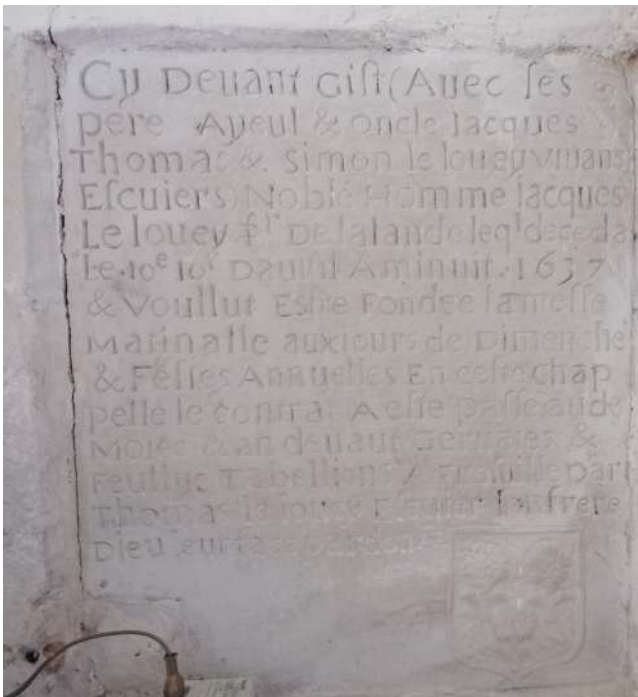 Cy Deuant Gist (Auec ses
pere Ayeul & oncle Jacques
Thomas & simon le louey viuans
Escuiers) Noble Homme jacques
Le louey sr De lalande leql deceda
Le 10e ior Dauril Aminuit 1637
& Voullut Estre Fondee lamesse
Matinalle aux iours de Dimenche
& Festes Annuelles En ceste chap
pelle le contrat A este passe aude
Mois & an deuant &
Tabellions A par
Thomas le louey Escuier son frere
Dieu leur face pardon